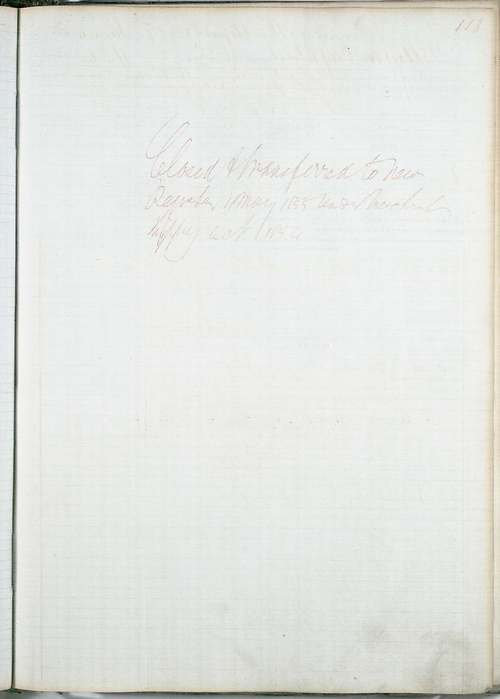 113
Closed & transferred to new
Register 1 May 1855 under Merchant
Shipping act 1854